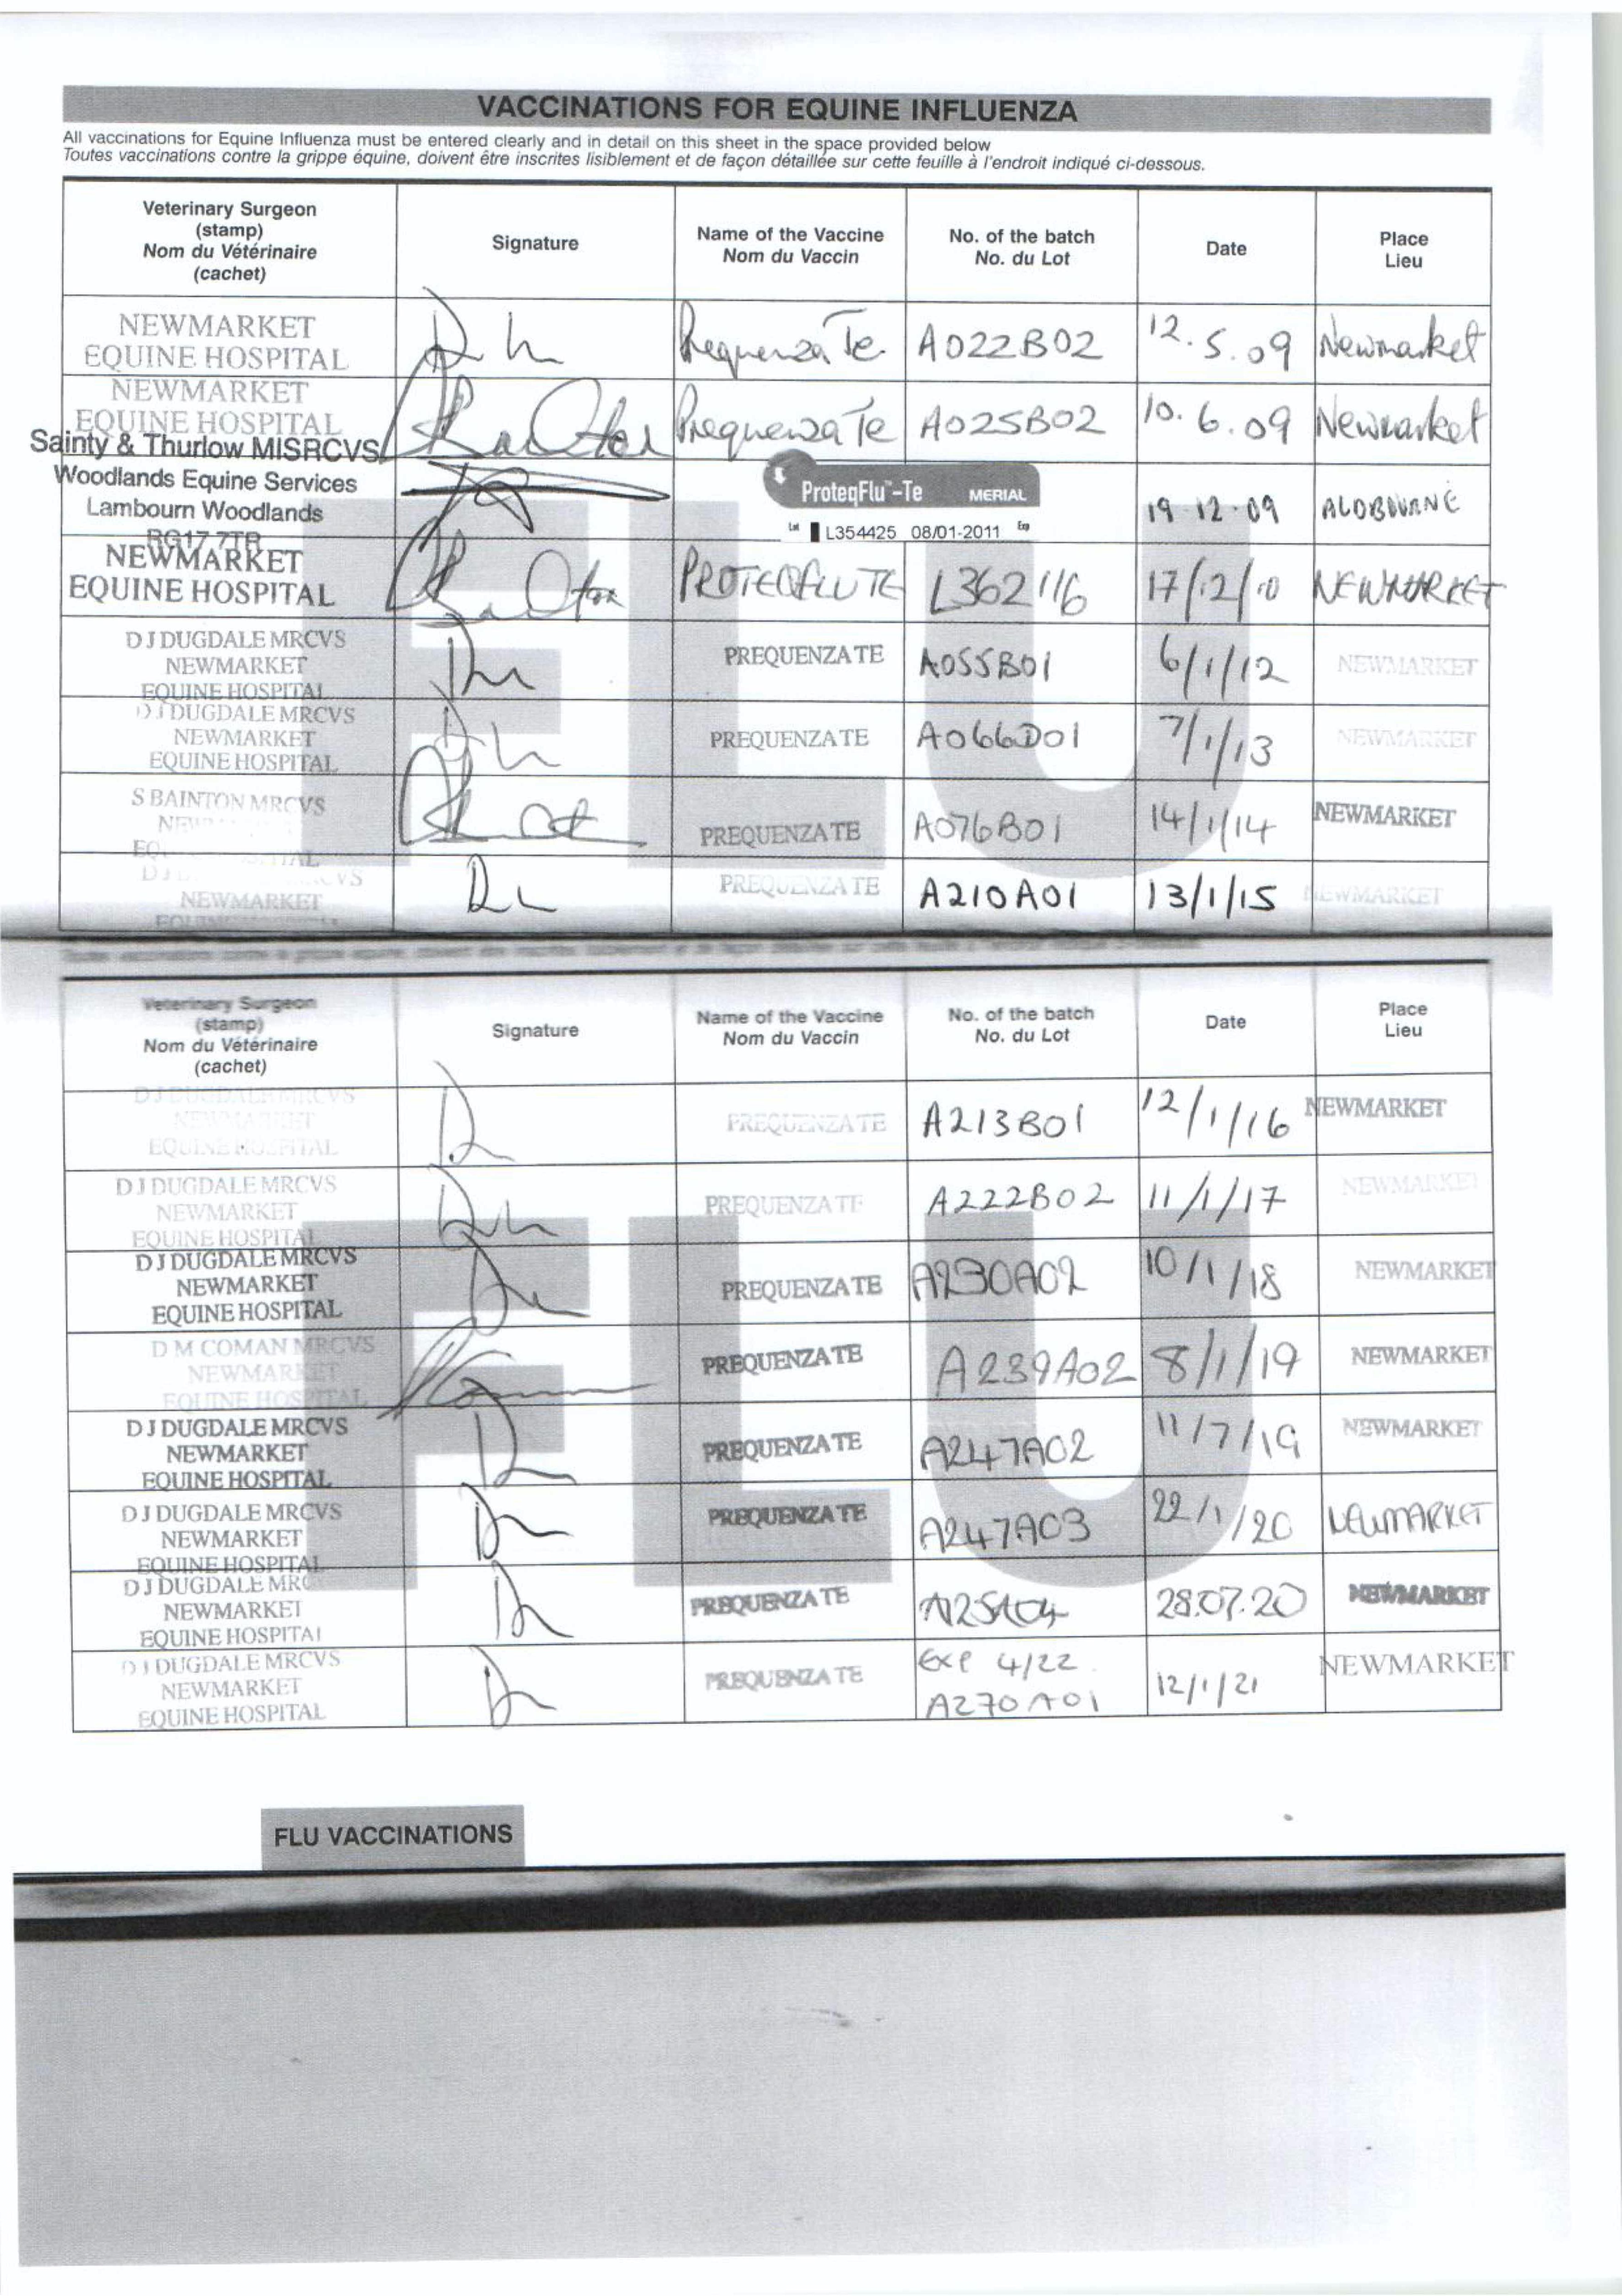 VACCINATIONS FOR EQUINE INFLUENZA
All vaccinations for Equine Influenza must be entered clearly and in detail on this sheet in the space provided below
Toutes vaccinations contre la grippe équine, doivent être inscrites lisiblement et de façon détaillée sur cette feuille à l'endroit indiqué ci-dessous.
Veterinary Surgeon
(stamp)
Nom du Vétérinaire
(cachet)
Signature
Name of the Vaccine
Nom du Vaccin
No. of the batch
No. du Lot
Date
Place
Lieu
NEWMARKET
EQUINE HOSPITAL
Prequenza Te
A022B02
12.5.09
Newmarket
NEWMARKET
EQUINE HOSPITAL
Prequenza Te
A025B02
10.6.09
Newmarket
Sainty & Thurlow MISRCVS
Woodlands Equine Services
Lambourn Woodlands
RG17 7TR
ProteqFlu™-Te MERIAL
Lot L354425 08/01-2011 Exp
19.12.09
NEWMARKET
EQUINE HOSPITAL
PROTEQFLUTE
L362116
17/12/10
NEWMARKET
D J DUGDALE MRCVS
NEWMARKET
EQUINE HOSPITAL
PREQUENZA TE
A055B01
6/1/12
NEWMARKET
D J DUGDALE MRCVS
NEWMARKET
EQUINE HOSPITAL
PREQUENZA TE
A066D01
7/1/13
NEWMARKET
S BAINTON MRCVS
PREQUENZA TE
A076B01
14/1/14
NEWMARKET
NEWMARKET
PREQUENZA TE
A210A01
13/1/15
NEWMARKET
Veterinary Surgeon
(stamp)
Nom du Vétérinaire
(cachet)
Signature
Name of the Vaccine
Nom du Vaccin
No. of the batch
No. du Lot
Date
Place
Lieu
D J DUGDALE MRCVS
NEWMARKET
EQUINE HOSPITAL
PREQUENZA TE
A213B01
12/1/16
NEWMARKET
D J DUGDALE MRCVS
NEWMARKET
EQUINE HOSPITAL
PREQUENZA TE
A222B02
11/1/17
NEWMARKET
D J DUGDALE MRCVS
NEWMARKET
EQUINE HOSPITAL
PREQUENZA TE
A230A02
10/1/18
NEWMARKET
D M COMAN MRCVS
NEWMARKET
EQUINE HOSPITAL
PREQUENZA TE
A239A02
8/1/19
NEWMARKET
D J DUGDALE MRCVS
NEWMARKET
EQUINE HOSPITAL
PREQUENZA TE
A247A02
11/7/19
NEWMARKET
D J DUGDALE MRCVS
NEWMARKET
EQUINE HOSPITAL
PREQUENZA TE
A247A03
22/1/20
NEWMARKET
D J DUGDALE MRC
NEWMARKET
EQUINE HOSPITAL
PREQUENZA TE
28.07.20
NEWMARKET
D J DUGDALE MRCVS
NEWMARKET
EQUINE HOSPITAL
PREQUENZA TE
Exp 4/22
A270A01
12/1/21
NEWMARKET
FLU
FLU
FLU VACCINATIONS